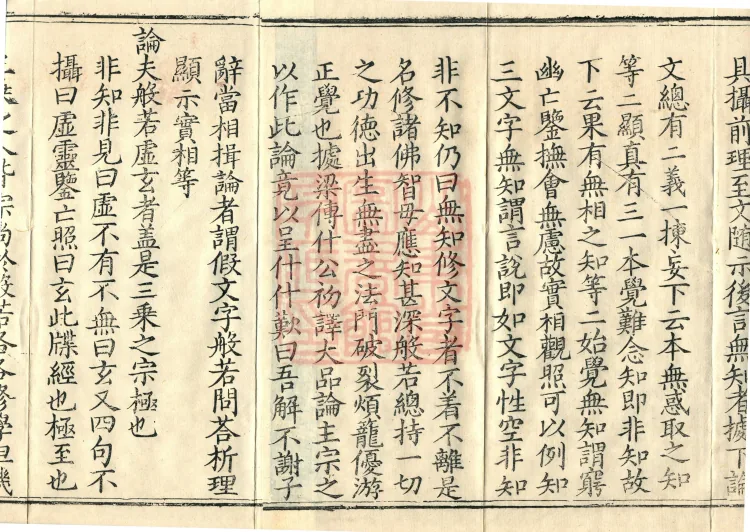 具攝前理至文隨示後言無知者㨿下論
文總有二義一揀妄下云本無惑取之知
等二顯真有三一本覺難念知即非知故
下云果有無相之知等二始覺無知謂窮
幽亡鑒撫會無慮故實相觀照可以例知
三文字無知謂言說即如文字性空非知
非不知仍曰無知修文字者不着不離是
名修諸佛智母應知甚深般若總持一切
之功德出生無盡之法門破裂煩籠優游
正覺也㨿梁傳什公初譯大品論主宗之
以作此論竟以呈什什歎曰吾解不謝子
辭當相揖論者謂假文字般若問荅析理
顯示實相等
論夫般若虛玄者盖是三乘之宗極也
非知非見曰虛不有不無曰玄又四句不
攝曰虛靈鑒亡照曰玄此牒經也極至也